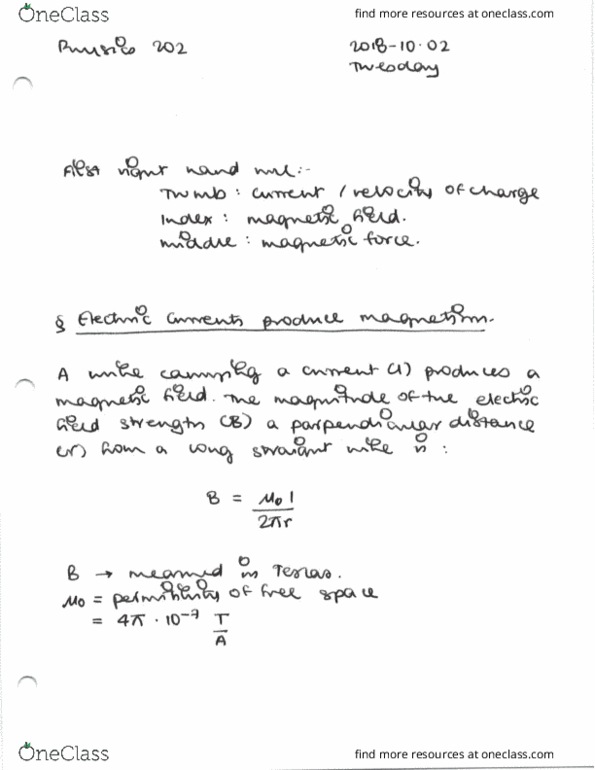 OneClass
find more resources at oneclass.com
Physics 202
2018-10-02
Tuesday
First right hand rule:-
Thumb : current / velocity of charge
Index : magnetic field.
middle : magnetic force.
§ Electric currents produce magnetism.
A wire carrying a current (I) produces a
magnetic field. The magnitude of the electric
field strength (B) a perpendicular distance
(r) from a long straight wire is :
B = μ₀ I
2πr
B → measured in Teslas.
μ₀ = permittivity of free space
= 4π · 10⁻⁷ T
A
OneClass
find more resources at oneclass.com